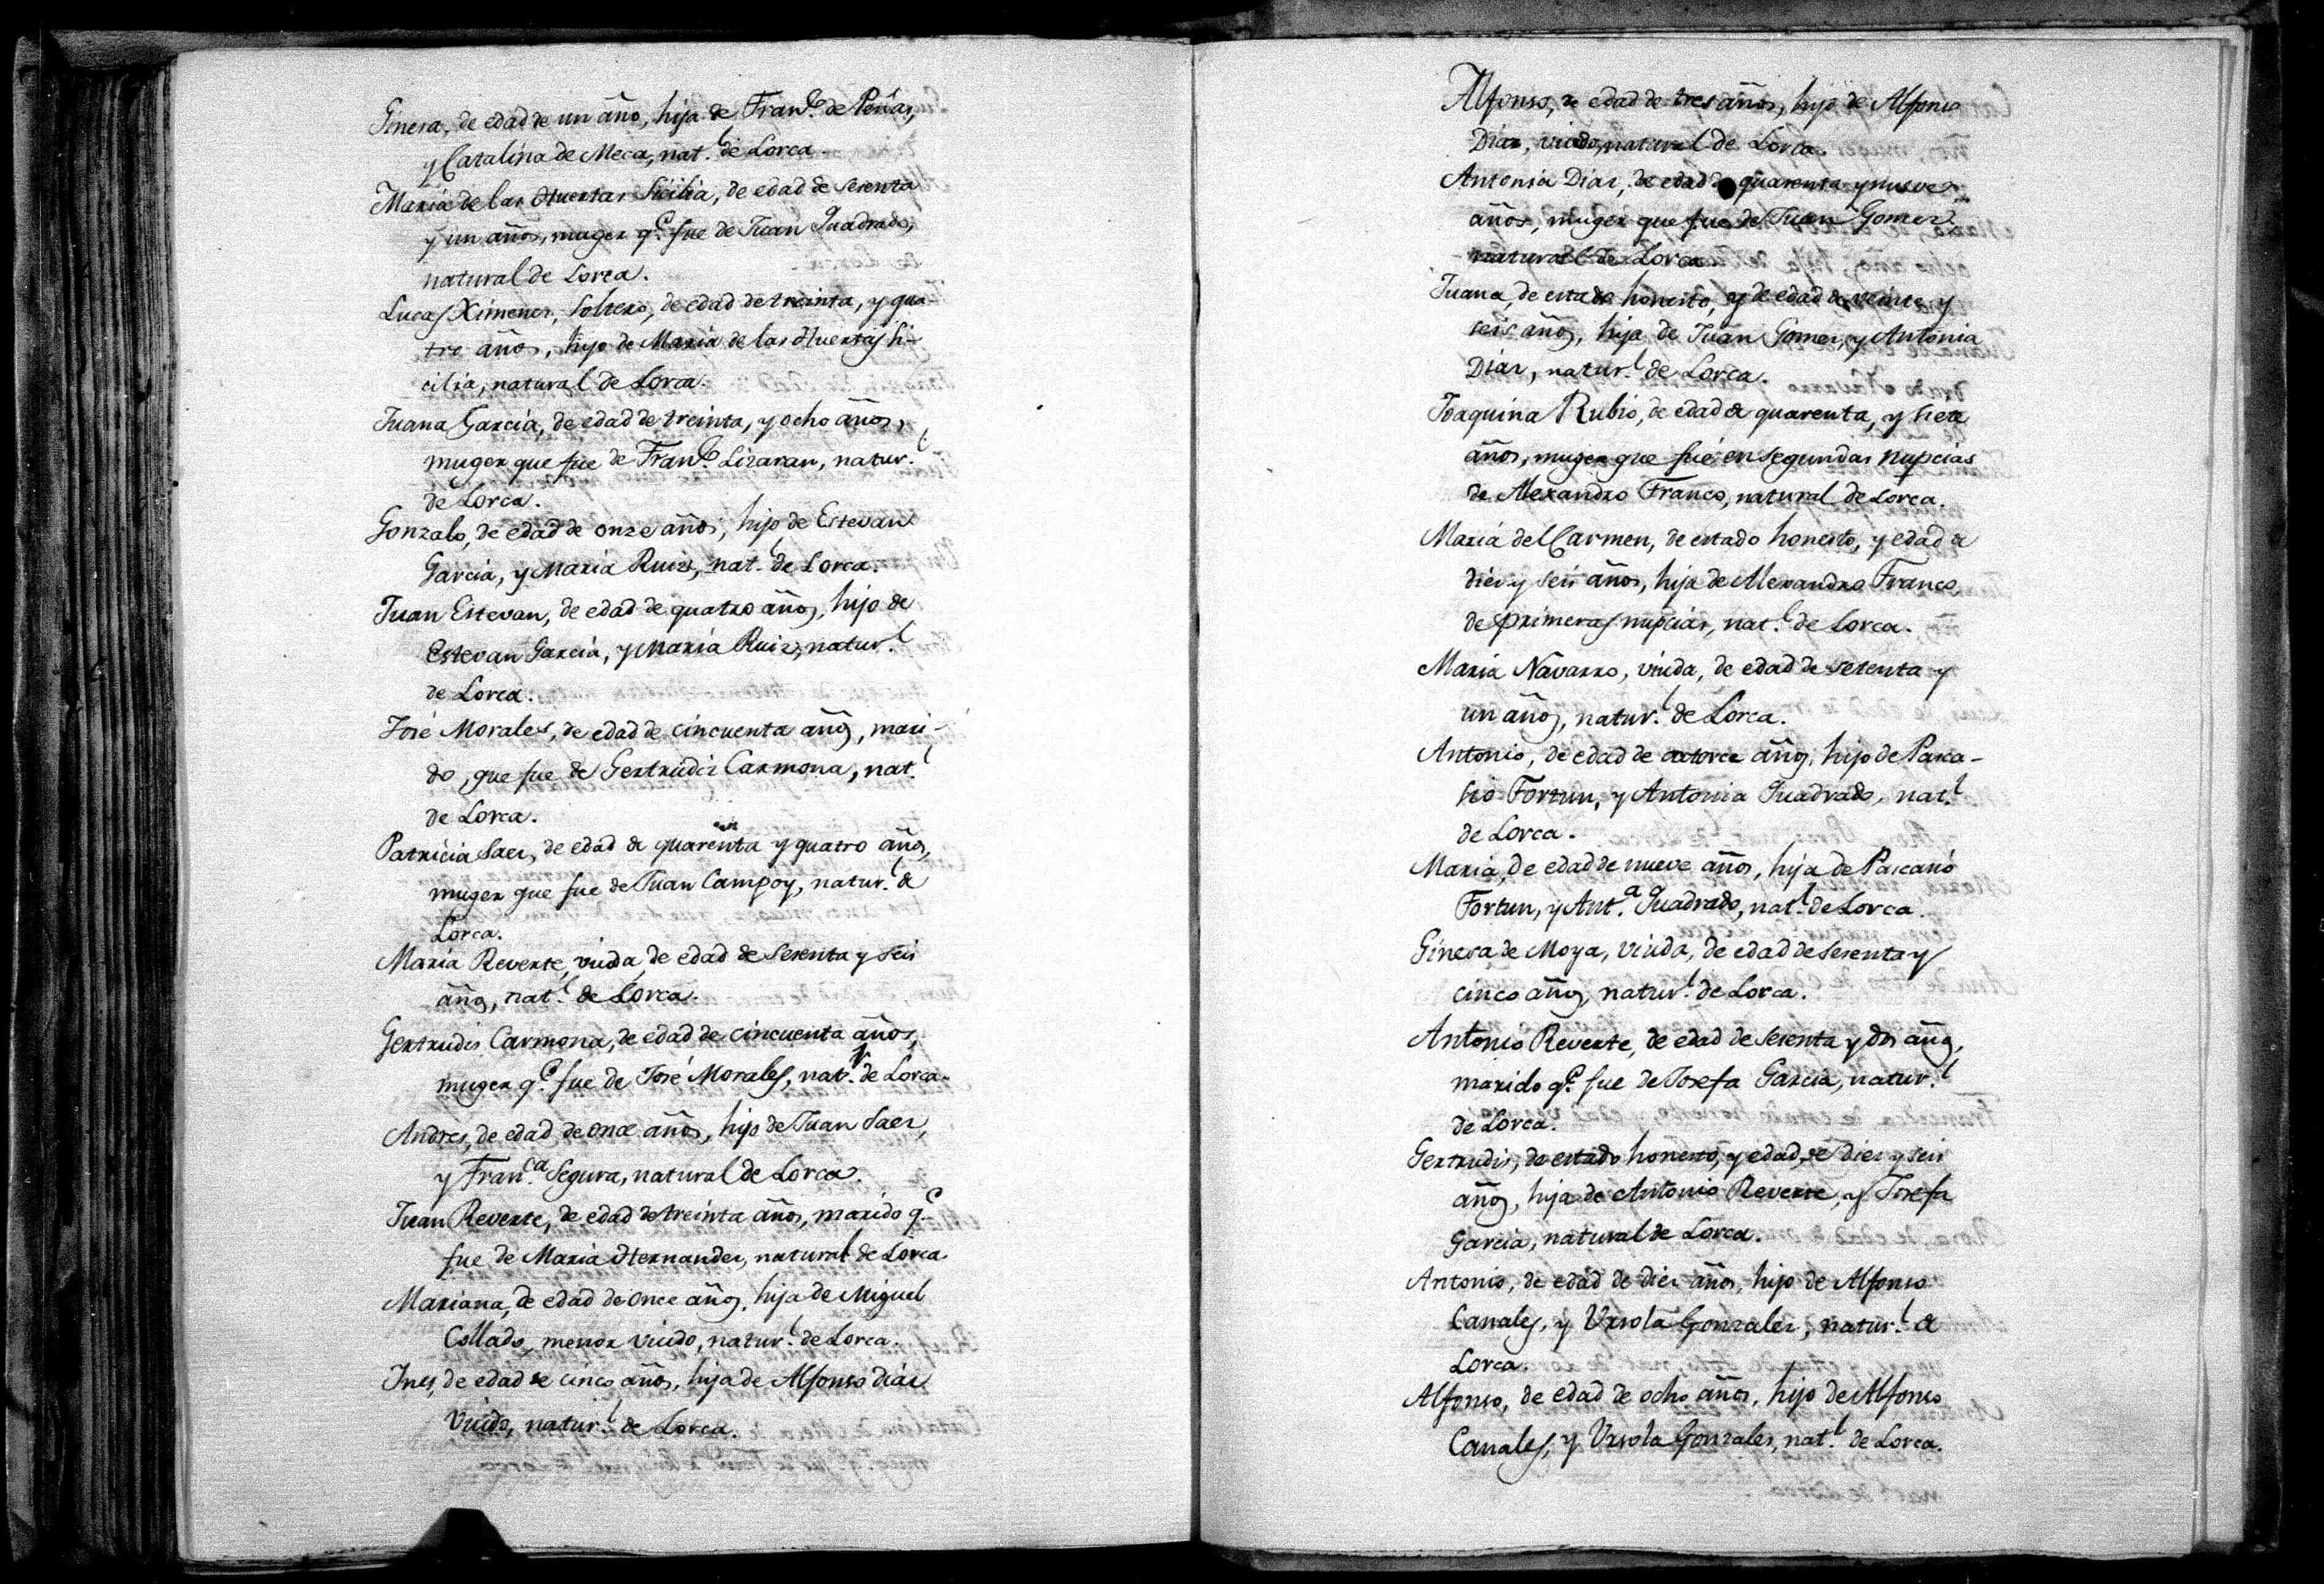 Ginesa, de edad de un año, hija de Fran.co de Peñas,
y Catalina de Meca, nat.l de Lorca.
Maria de las Huertas Sicilia, de edad de sesenta
y un años, muger q.e fue de Juan Quadrado,
natural de Lorca.
Lucas Ximenez, soltero, de edad de treinta, y qua-
tro años, hijo de Maria de las Huertas Si-
cilia, natural de Lorca.
Juana Garcia, de edad de treinta, y ocho años,
muger que fue de Fran.co Lizaran, natur.l
de Lorca.
Gonzalo, de edad de onze años, hijo de Estevan
Garcia, y Maria Ruiz, nat.l de Lorca.
Juan Estevan, de edad de quatro años, hijo de
Estevan Garcia, y Maria Ruiz, natur.l
de Lorca.
José Morales, de edad de cincuenta años, mari-
do, que fue de Gertrudis Carmona, nat.l
de Lorca.
Patricia Saez, de edad de quarenta y quatro años,
muger que fue de Juan Campoy, natur.l de
Lorca.
Maria Reverte, viuda de edad de sesenta y seis
años, nat.l de Lorca.
Gertrudis Carmona, de edad de cincuenta años,
muger q.e fue de José Morales, nat.l de Lorca.
Andres, de edad de once años, hijo de Juan Saez,
y Fran.ca Segura, natural de Lorca.
Juan Reverte, de edad de treinta años, marido q.e
fue de Maria Hernandez, natural de Lorca.
Mariana, de edad de once años, hija de Miguel
Collado, menor viudo, natur.l de Lorca.
Ines, de edad de cinco años, hija de Alfonso diaz
viudo, natur.l de Lorca.
Alfonso, de edad de tres años, hijo de Alfonso
Diaz, viudo, natural de Lorca.
Antonia Diaz, de edad de quarenta y nueve
años, muger que fue de Juan Gomez
natural de Lorca
Juana, de estado honesto, y de edad de veinte y
seis años, hija de Juan Gomez, y Antonia
Diaz, natur.l de Lorca.
Joaquina Rubio, de edad de quarenta, y siete
años, muger que fué en segundas nupcias
de Alexandro Franco, natural de Lorca.
Maria del Carmen, de estado honesto, y edad de
diez y seis años, hija de Alexandro Franco,
de primeras nupcias, nat.l de Lorca.
Maria Navarro, viuda, de edad de setenta y
un años, natur.l de Lorca.
Antonio, de edad de catorce años, hijo de Pasca-
sio Fortun, y Antonia Quadrado, nat.l
de Lorca.
Maria, de edad de nueve años, hija de Pascasio
Fortun, y Ant.a Quadrado, nat.l de Lorca.
Ginesa de Moya, viuda, de edad de sesenta y
cinco años, natur.l de Lorca.
Antonio Reverte, de edad de sesenta y dos años,
marido q.e fue de Josefa Garcia, natur.l
de Lorca.
Gertrudis, de estado honesto, y edad, de diez y seis
años, hija de Antonio Reverte, y Josefa
Garcia, natural de Lorca.
Antonio, de edad de diez años, hijo de Alfonso
Canales, y Ursola Gonzalez, natur.l de
Lorca.
Alfonso, de edad de ocho años, hijo de Alfonso
Canales, y Ursola Gonzalez, nat.l de Lorca.